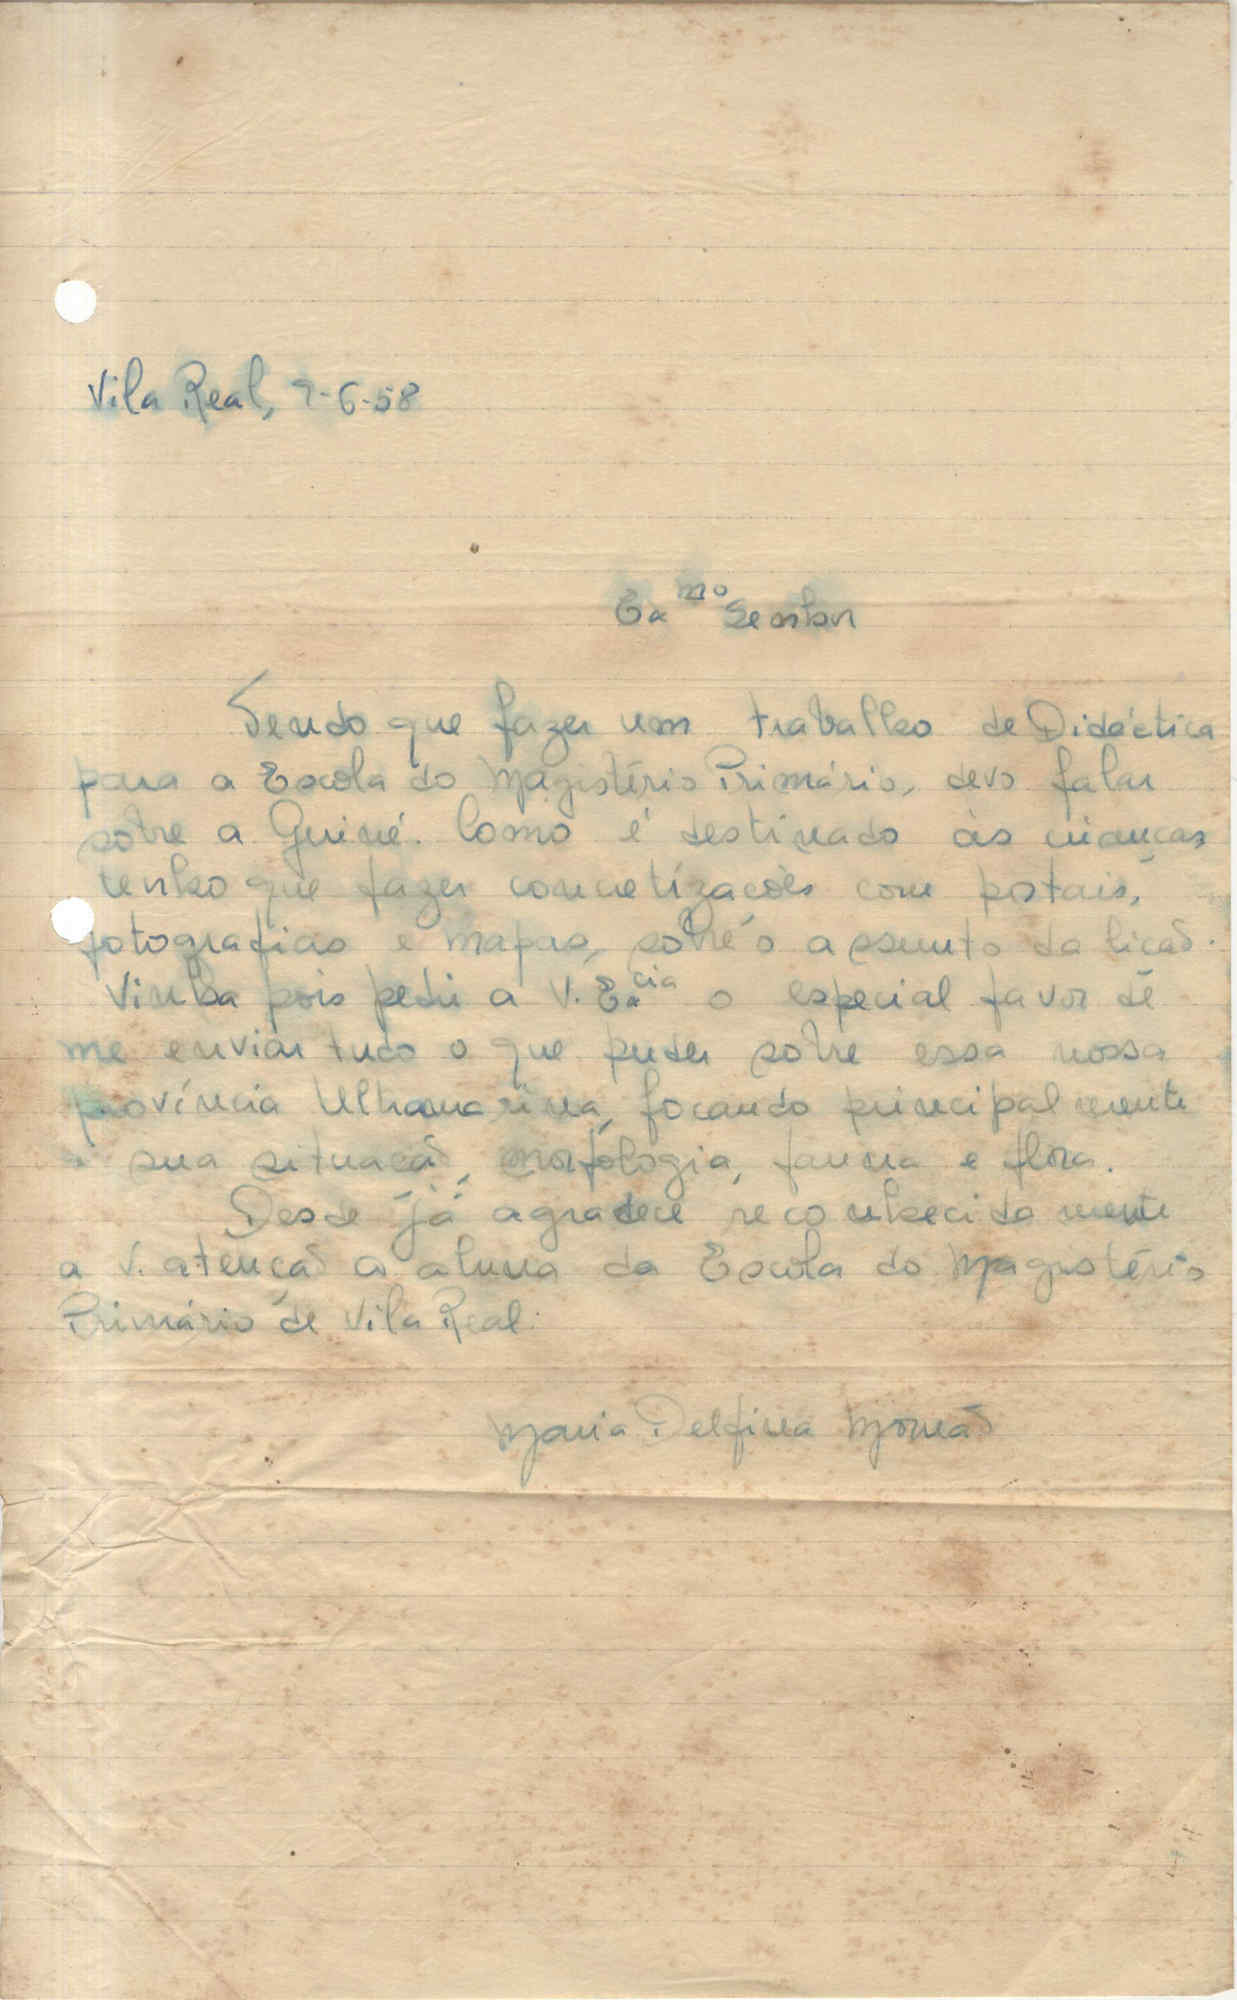 Vila Real, 9-6-58
Exmo Senhor
Tendo que fazer um trabalho de Didáctica
para a Escola do Magistério Primário, devo falar
sobre a Guiné. Como é destinado às crianças
tenho que fazer concretizações com postais,
fotografias e mapas, sobre o assunto da lição.
Vinha pois pedir a V. Excia o especial favor de
me enviar tudo o que puder sobre essa nossa
província Ultramarina, focando principalmente
a sua situação, morfologia, fauna e flora.
Desde já agradece reconhecidamente
a V. atenção a aluna da Escola do Magistério
Primário de Vila Real.
Maria Delfina